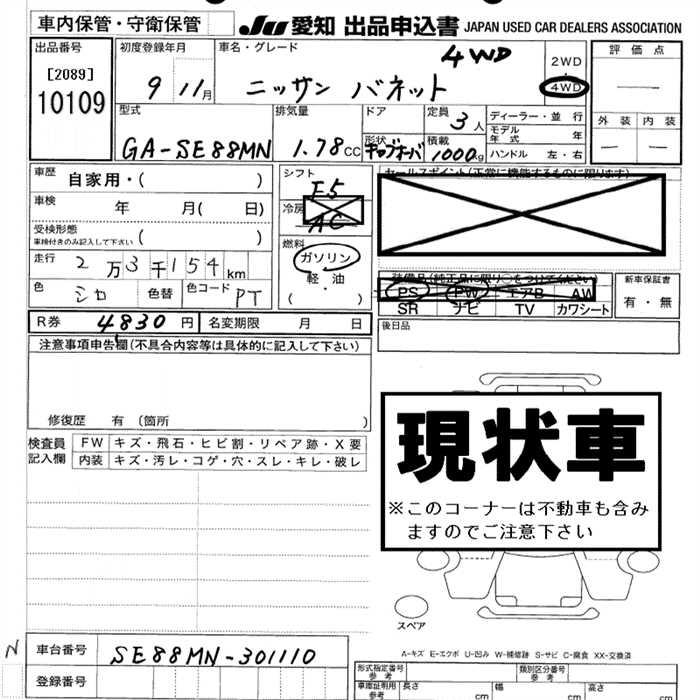 車内保管・守衛保管 JU 愛知 出品申込書 JAPAN USED CAR DEALERS ASSOCIATION
出品番号 [2089] 10109
初度登録年月 9 11月
車名・グレード ニッサン バネット 4WD
2WD ・ 4WD
評価点
外装 内装
型式 GA-SE88MN
排気量 1.78CC
ドア
形状 キャブオーバ
定員 3人
積載 1000kg
ディーラー・並行
モデル年式 年
ハンドル 左・右
車歴 自家用・( )
車検 年 月( 日)
受検形態 車検付きのみ記入して下さい ( )
走行 2万3千154km
色 シロ 色替 色コード PT
シフト F5
冷房 AC
燃料 ガソリン 軽・油 ( )
セールスポイント(正常に機能するものに限ります)
装備品(純正品に限り○をつけてください)
PS PW エアB AW
SR ナビ TV カワシート
新車保証書 有・無
R券 4830円 名変期限 月 日
後日品
注意事項申告欄(不具合内容等は具体的に記入して下さい)
修復歴 有(箇所 )
検査員記入欄
FW キズ・飛石・ヒビ割・リペア跡・X要
内装 キズ・汚レ・コゲ・穴・スレ・キレ・破レ
現状車
※このコーナーは不動車も含み
ますのでご注意下さい
スペア
A-キズ E-エクボ U-凹み W-補修跡 S-サビ C-腐食 XX-交換済
N
車台番号 SE88MN-301110
登録番号
形式指定番号 参考
類別区分番号 参考
車庫証明用 参考 長さ cm 幅 cm 高さ cm